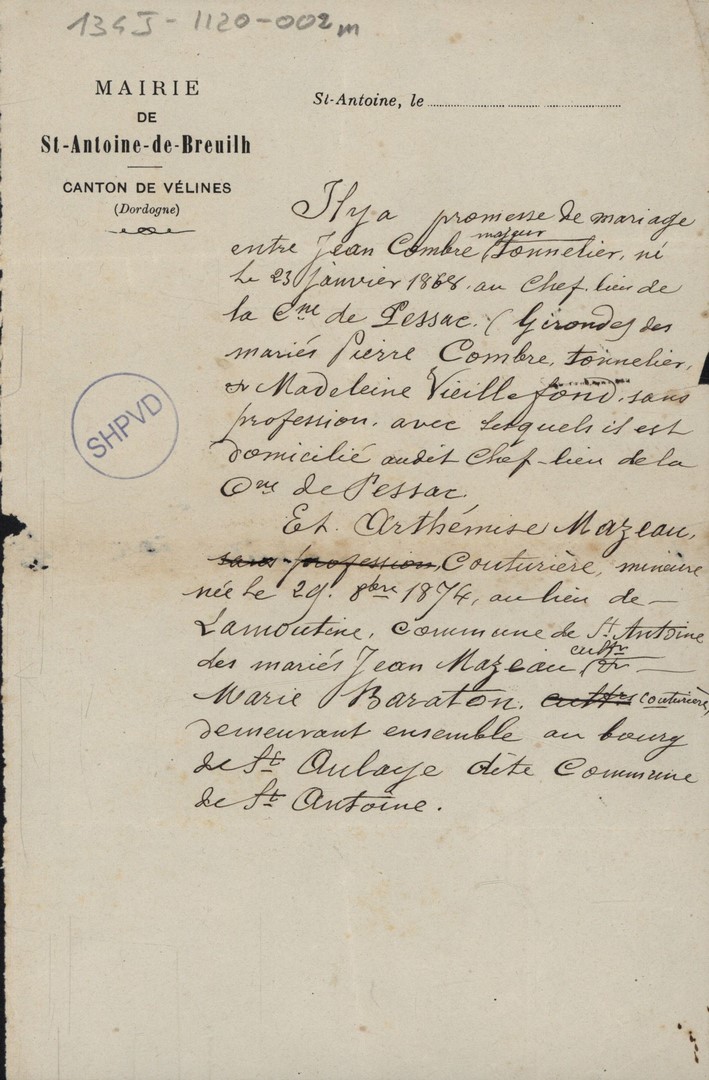 134J-1120-002m
MAIRIE
DE
St-Antoine-de-Breuilh
CANTON DE VÉLINES
(Dordogne)
St-Antoine, le
SHPVD
Il y a promesse de mariage
entre Jean Combre, majeur tonnelier, né
le 23 janvier 1868, au Chef-lieu de
la Cne de Pessac. (Gironde) des
mariés Pierre Combre, tonnelier,
et Madeleine Vieillefond, sans
profession, avec lesquels il est
domicilié audit Chef-lieu de la
Cne de Pessac.
Et Arthémise Mazeau,
sans profession, Couturière, mineure
née le 29 8bre 1874, au lieu de
Lamoutine, Commune de St Antoine
des mariés Jean Mazeau, cultr et
Marie Baraton, cultrs couturière,
demeurant ensemble au bourg
de St Aulaye dite Commune
de St Antoine.